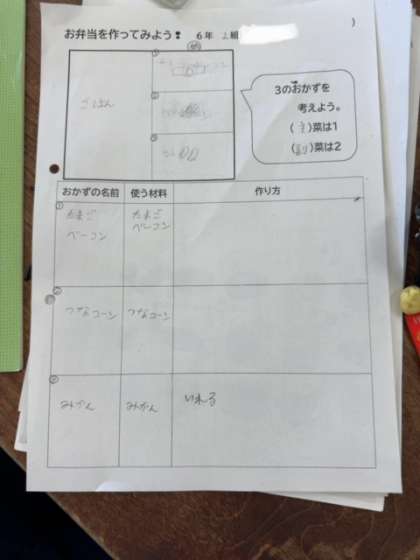 )
お弁当を作ってみよう! 6年 2組
ごはん
①
②
③
3のおかずを
考えよう。
(主)菜は1
(副)菜は2
おかずの名前 使う材料 作り方
①
たまご たまご
ベーコン ベーコン
②
つなコーン つなコーン
③
みかん みかん いれる